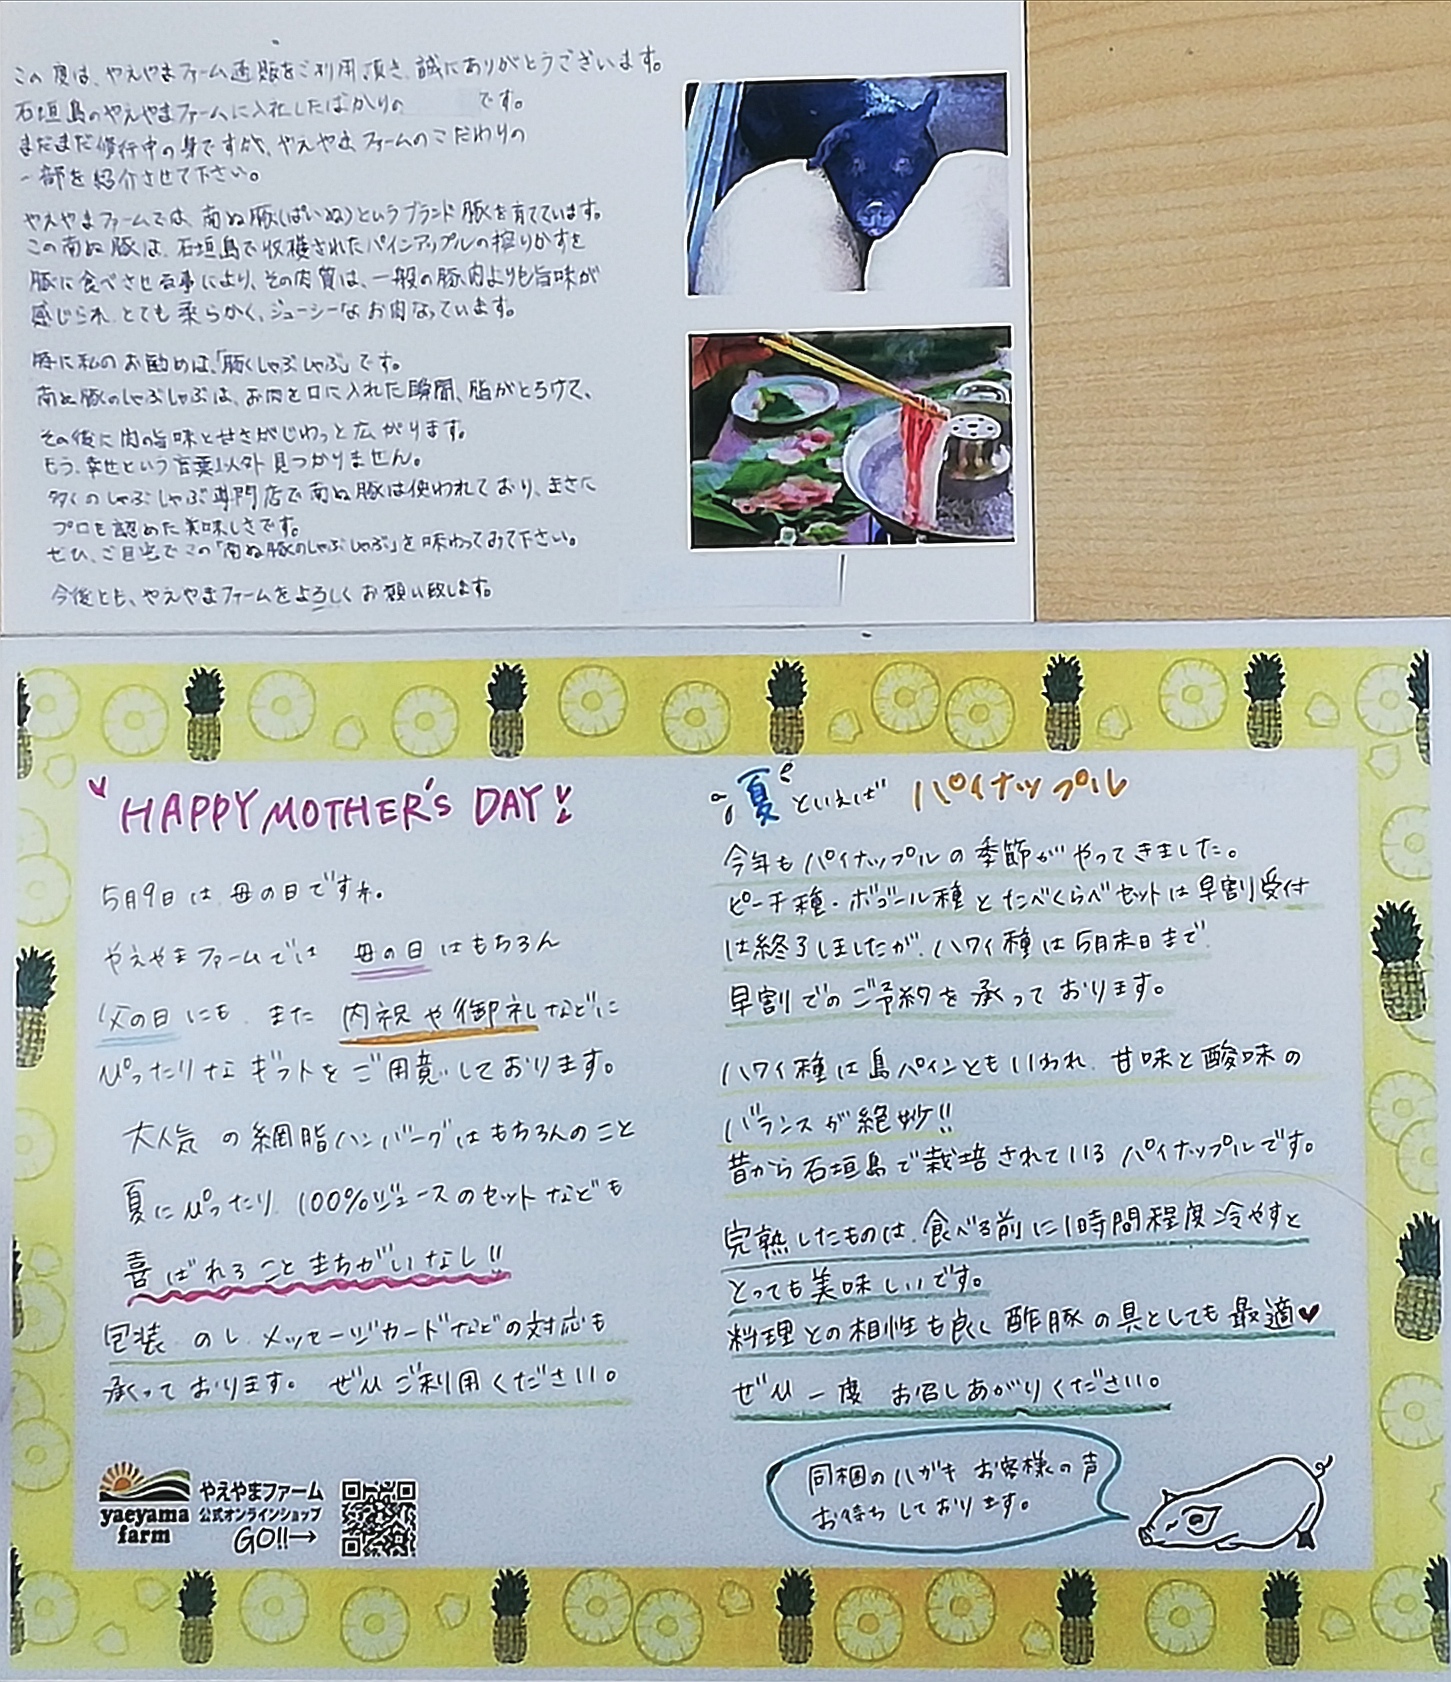 この度は、やえやまファーム通販をご利用頂き、誠にありがとうございます。
石垣島のやえやまファームに入社したばかりの
です。
まだまだ修行中の身ですが、やえやまファームのこだわりの
一部を紹介させて下さい。
やえやまファームでは、南ぬ豚(ぱいぬ)というブランド豚を育てています。
この南ぬ豚は、石垣島で収穫されたパインアップルの搾りかすを
豚に食べさせる事により、その肉質は、一般の豚肉よりも旨味が
感じられ、とても柔らかく、ジューシーなお肉なっています。
豚に私のお勧めは、「豚くしゃぶしゃぶ」です。
南ぬ豚のしゃぶしゃぶは、お肉を口に入れた瞬間、脂がとろけて、
その後に肉の旨味と甘さがじわっと広がります。
もう、幸せという言葉以外見つかりません。
多くのしゃぶしゃぶ専門店で南ぬ豚は使われており、まさに
プロも認めた美味しさです。
ぜひ、ご自宅でこの「南ぬ豚のしゃぶしゃぶ」を味わってみて下さい。
今後とも、やえやまファームをよろしくお願い致します。
HAPPY MOTHER'S DAY!
5月9日は、母の日ですね。
やえやまファームでは 母の日はもちろん
父の日にも、また 内祝や御礼などに
ぴったりなギフトをご用意しております。
大人気の網脂ハンバーグはもちろんのこと
夏にぴったり、100%ジュースのセットなども
喜ばれることまちがいなし!!
包装、のし、メッセージカードなどの対応も
承っております。ぜひご利用ください。
やえやまファーム
公式オンラインショップ
yaeyama
farm
GO!!→
夏といえば パイナップル
今年もパイナップルの季節がやってきました。
ピーチ種・ボゴール種とたべくらべセットは早割受付
は終了しましたが、ハワイ種は5月末日まで
早割でのご予約を承っております。
ハワイ種は島パインともいわれ、甘味と酸味の
バランスが絶妙!!
昔から石垣島で栽培されているパイナップルです。
完熟したものは、食べる前に1時間程度冷やすと
とっても美味しいです。
料理との相性も良く酢豚の具としても最適♥
ぜひ一度お召しあがりください。
同梱のハガキ お客様の声
お待ちしております。